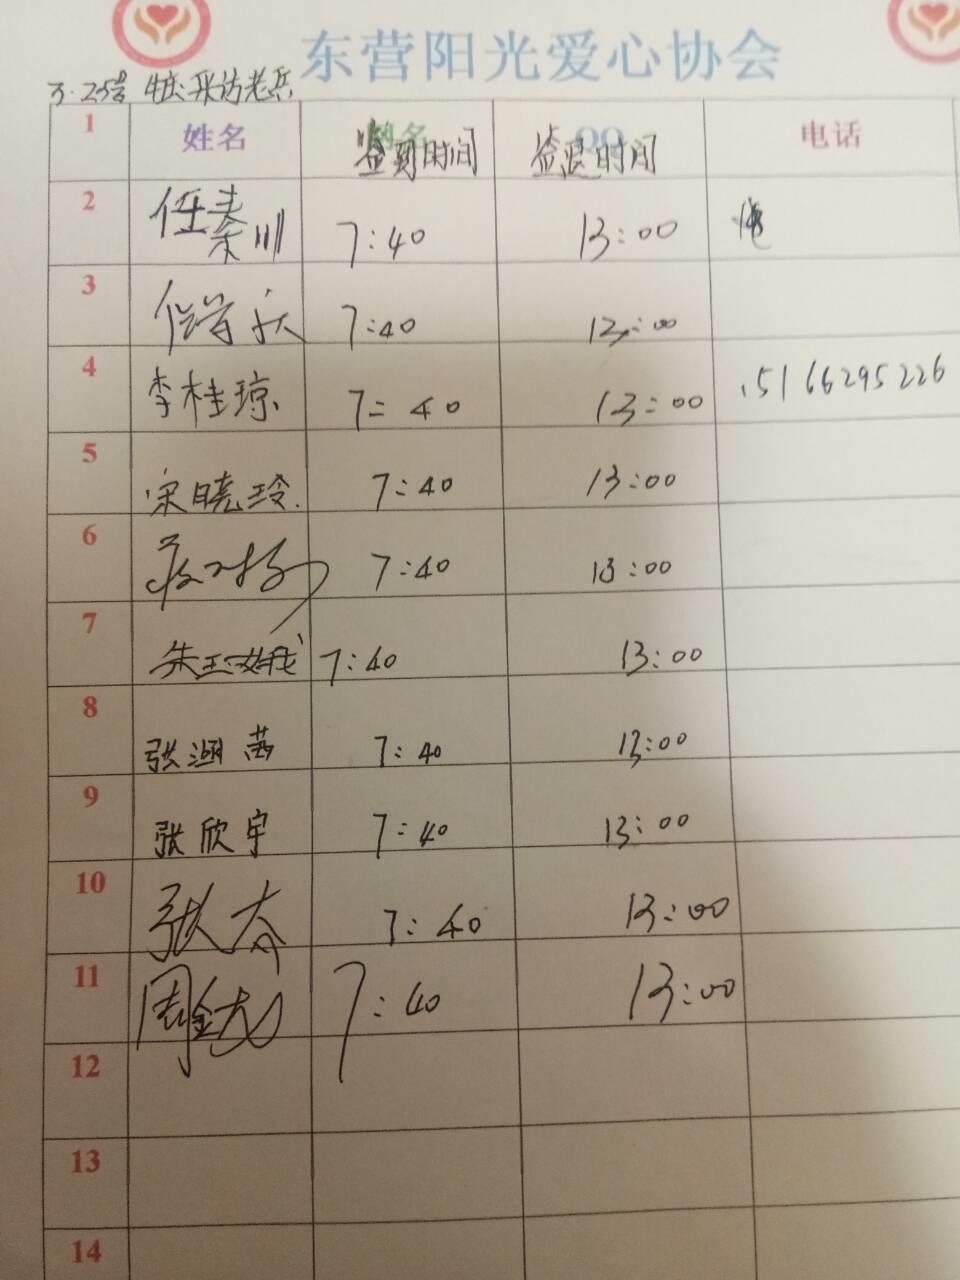 东营阳光爱心协会
3.25号 牛庄采访老兵
1 姓名 签到时间 签退时间 电话
2 任秦川 7:40 13:00
3 7:40 13:00
4 李桂琼 7:40 13:00 15166295226
5 宋晓玲 7:40 13:00
6 7:40 13:00
7 朱玉娥 7:40 13:00
8 张涵茜 7:40 13:00
9 张欣宇 7:40 13:00
10 7:40 13:00
11 周金龙 7:40 13:00
12
13
14